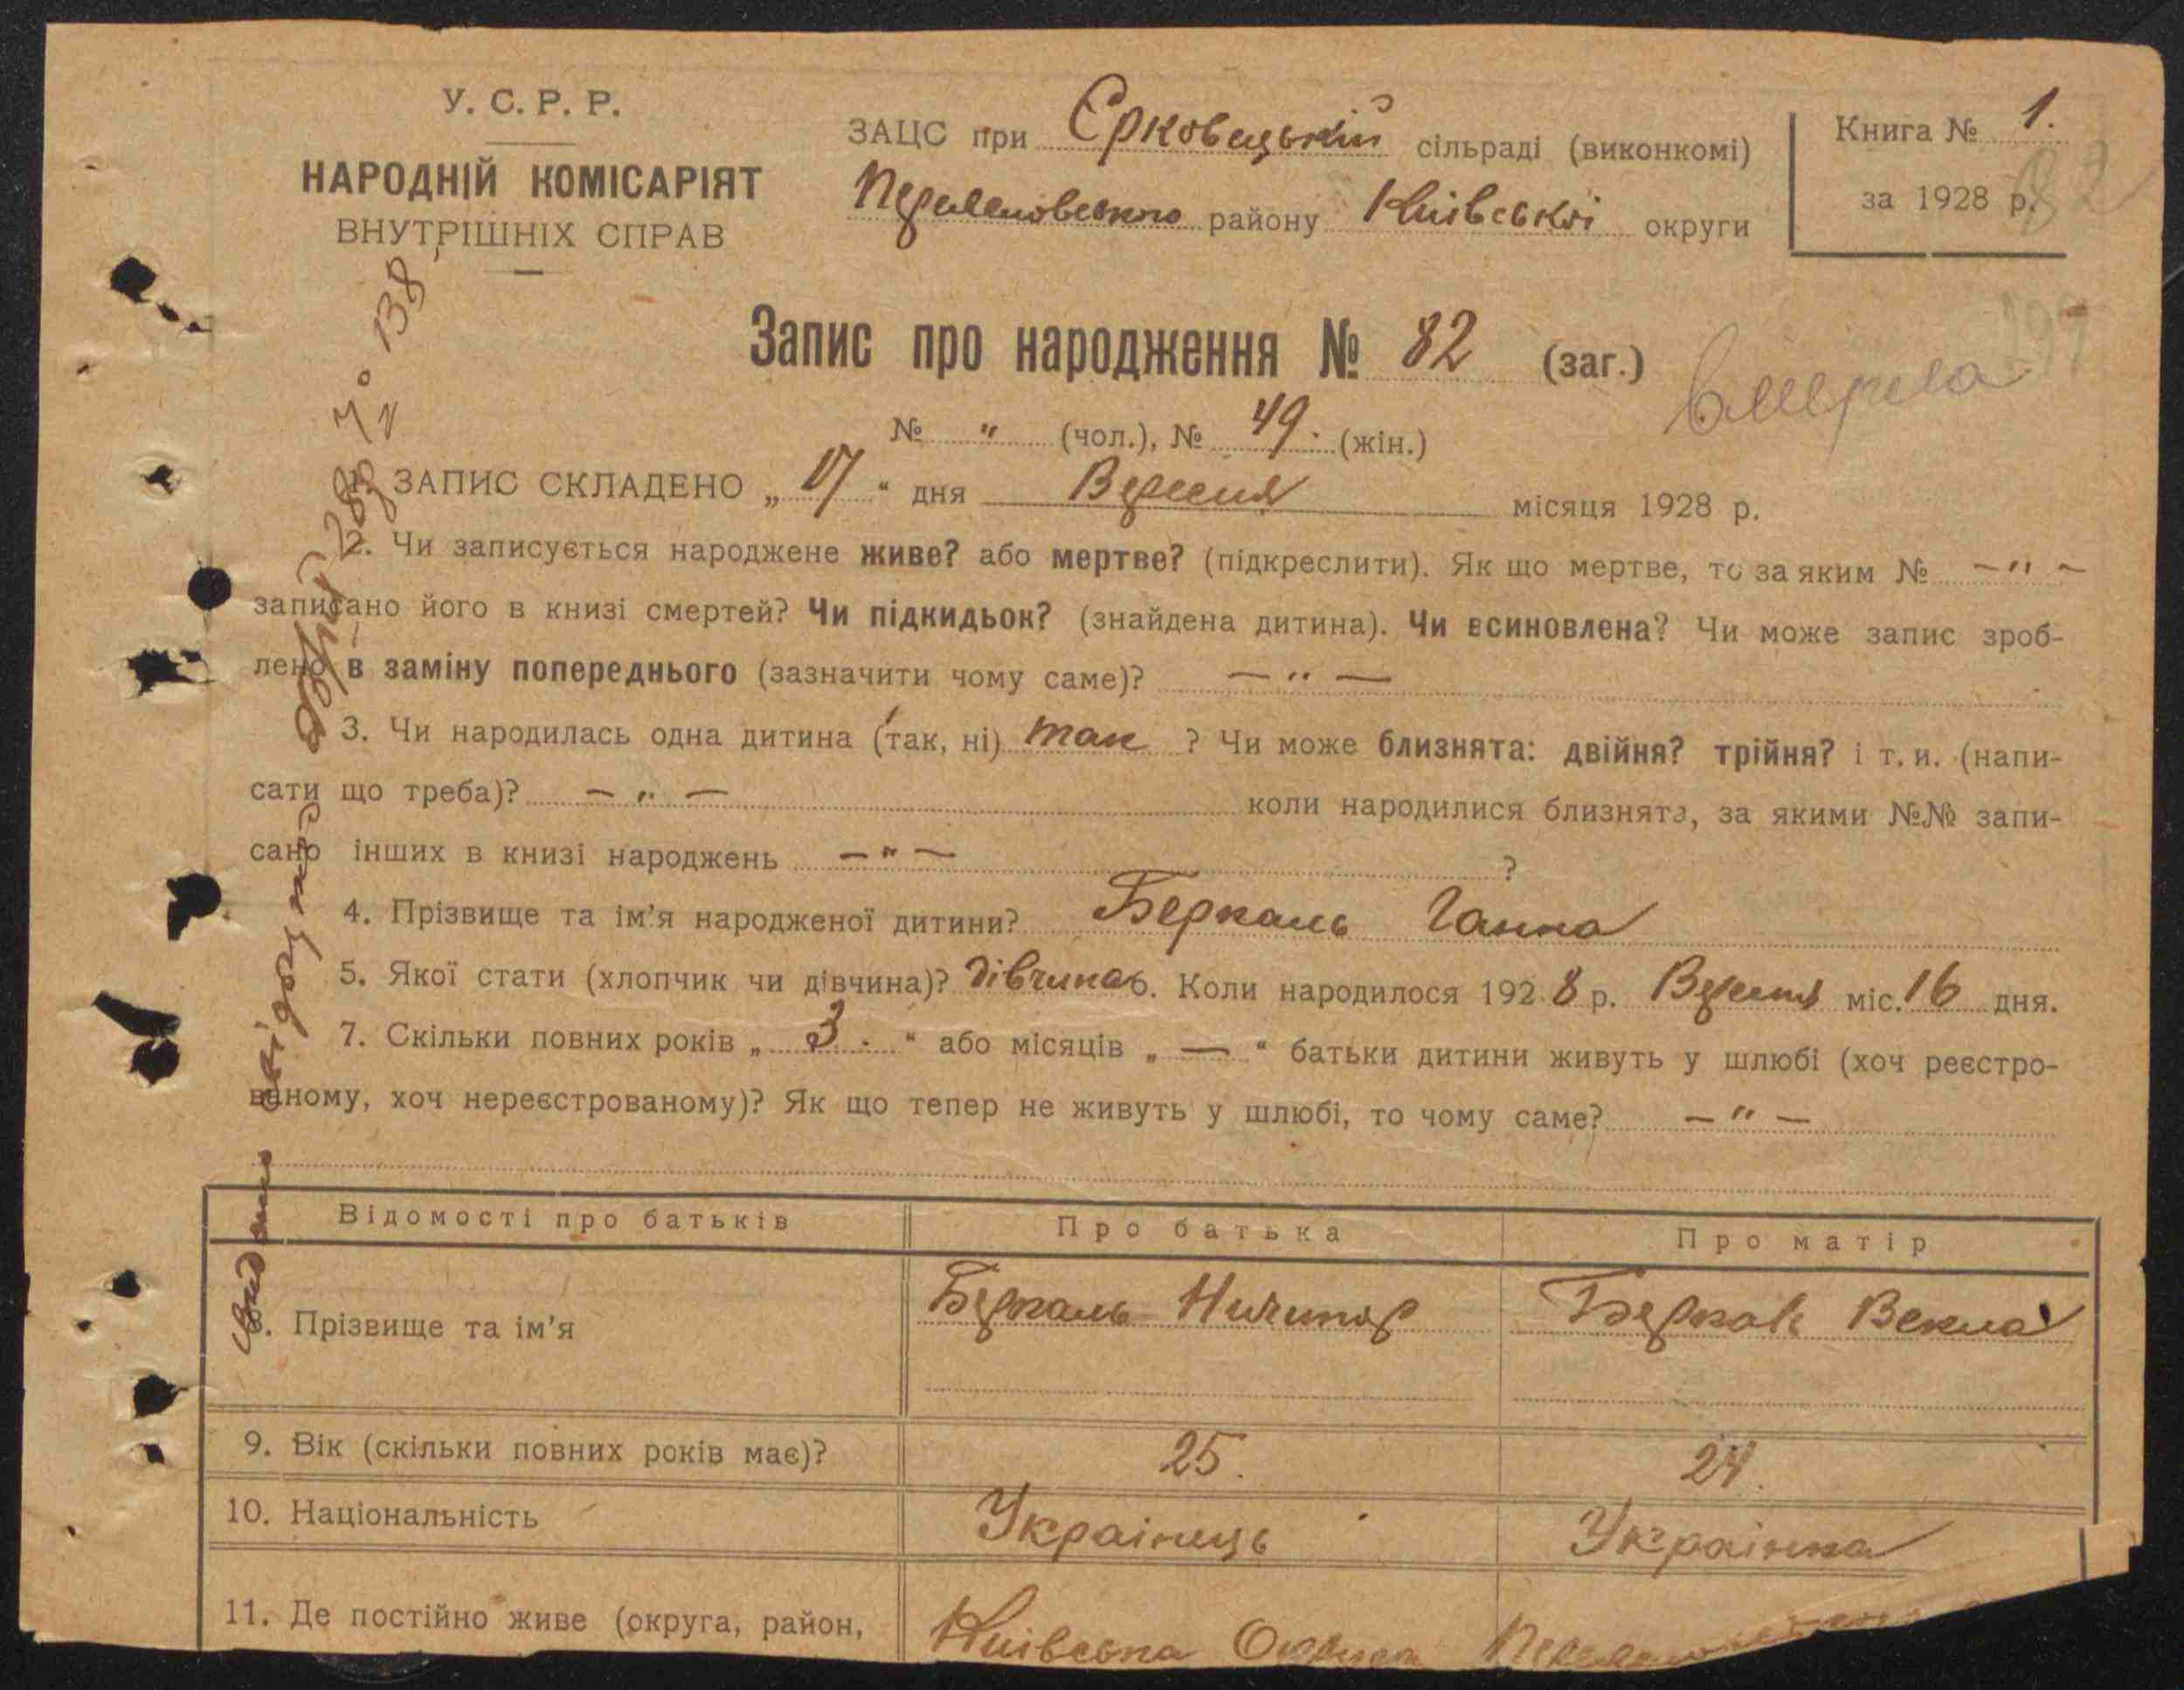 У. С. Р. Р.
НАРОДНІЙ КОМІСАРІЯТ
ВНУТРІШНІХ СПРАВ
ЗАЦС при Єрковецькій сільраді (виконкомі)
району Київської округи
Книга № 1.
за 1928 р. 82
Запис про народження № 82 (заг.)
вмерла
№ " (чол.), № 49. (жін.)
1. ЗАПИС СКЛАДЕНО „ 17 “ дня Вересня місяця 1928 р.
2. Чи записується народжене живе? або мертве? (підкреслити). Як що мертве, то за яким № — " —
записано його в книзі смертей? Чи підкидьок? (знайдена дитина). Чи всиновлена? Чи може запис зроб-
лено в заміну попереднього (зазначити чому саме)? — " —
3. Чи народилась одна дитина (так, ні) так ? Чи може близнята: двійня? трійня? і т. и. (напи-
сати що треба)? — " — коли народилися близнята, за якими №№ запи-
сано інших в книзі народжень — " — ?
4. Прізвище та ім'я народженої дитини? Беркаль Ганна
5. Якої стати (хлопчик чи дівчина)? дівчина 6. Коли народилося 192 8 р. Вересня міс. 16 дня.
7. Скільки повних років „ 3. “ або місяців „ — “ батьки дитини живуть у шлюбі (хоч реєстро-
ваному, хоч нереєстрованому)? Як що тепер не живуть у шлюбі, то чому саме? — " —
Відомості про батьків Про батька Про матір
8. Прізвище та ім'я Беркаль Ничипор Беркаль Векла
9. Вік (скільки повних років має)? 25. 24.
10. Національність Українець Українка
11. Де постійно живе (округа, район, Київська Округа
№ 138